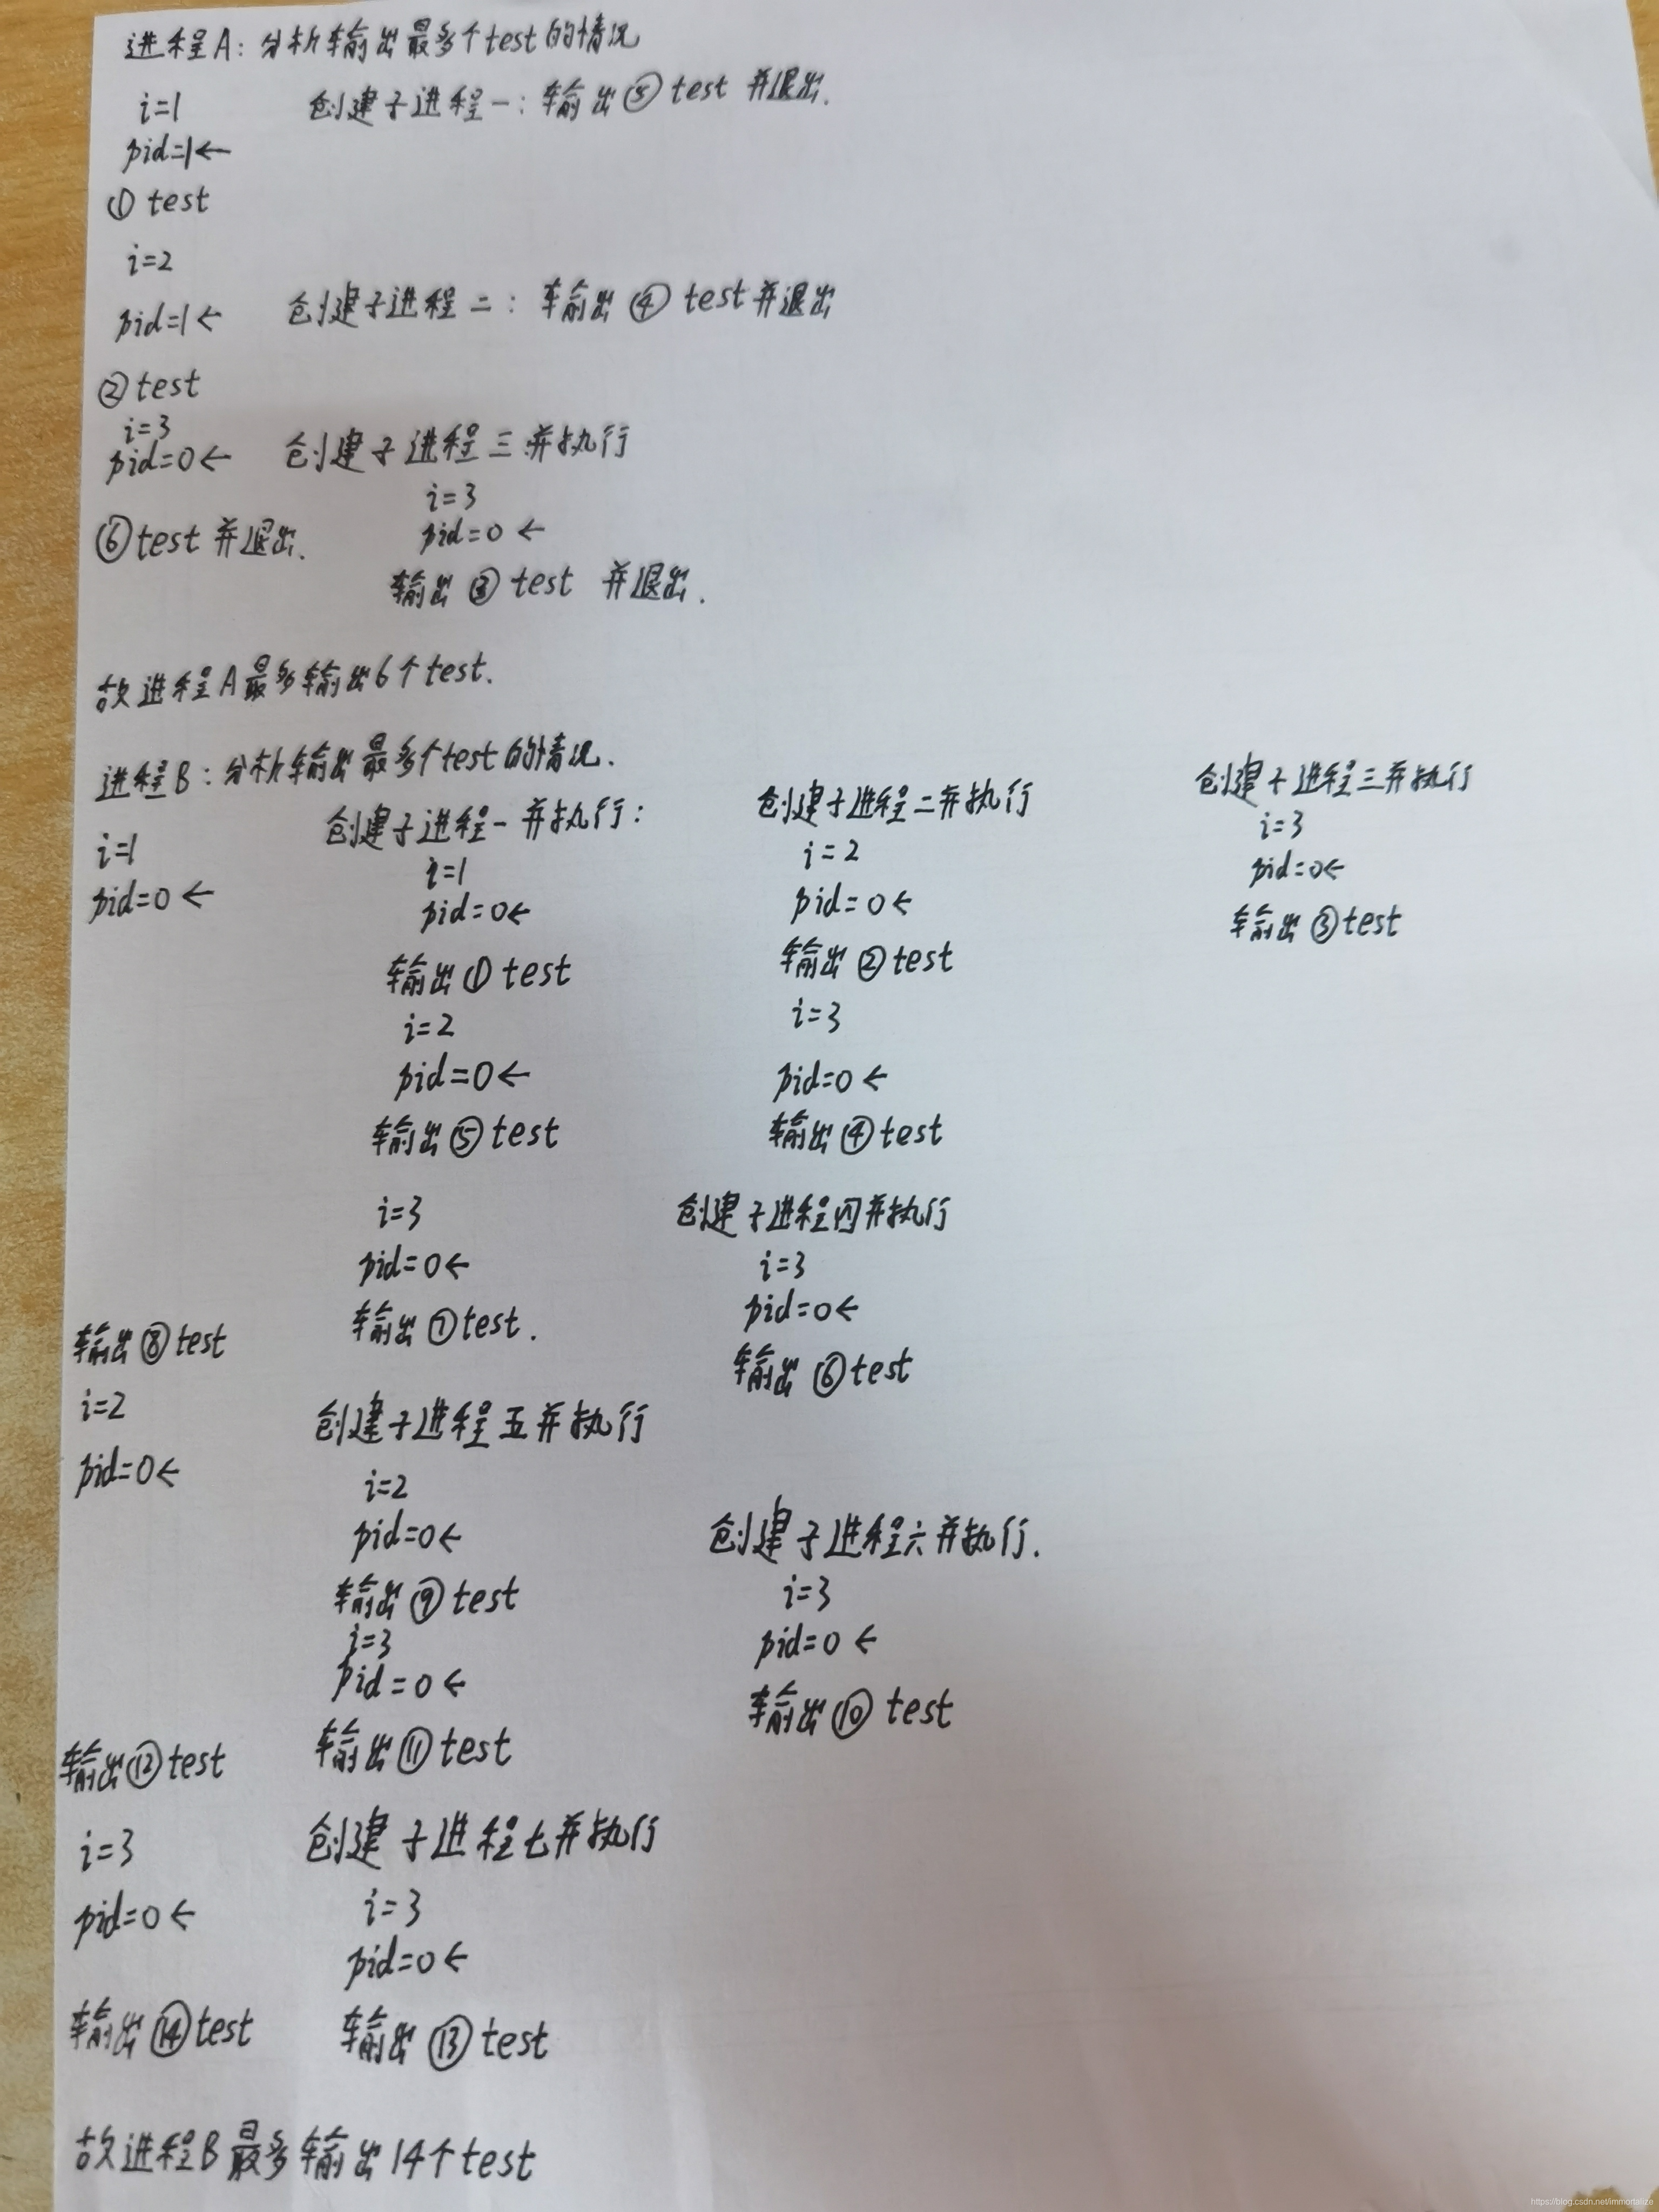 进程A：分析输出最多个test的情况
i=1 创建子进程一：输出⑤test 并退出.
pid=1←
① test
i=2
pid=1← 创建子进程二：输出④ test并退出
② test
i=3
pid=0← 创建子进程三并执行
i=3
pid=0←
⑥test 并退出.
输出③test 并退出.
故进程A最多输出6个test.
进程B：分析输出最多个test的情况.
i=1
pid=0←
创建子进程一并执行：
i=1
pid=0←
输出①test
i=2
pid=0←
输出⑤test
i=3
pid=0←
输出⑦test.
创建子进程二并执行
i=2
pid=0←
输出②test
i=3
pid=0←
输出④test
创建子进程三并执行
i=3
pid=0←
输出③test
创建子进程四并执行
i=3
pid=0←
输出⑥test
输出⑧test
i=2
pid=0←
创建子进程五并执行
i=2
pid=0←
输出⑨test
i=3
pid=0←
输出⑪test
创建子进程六并执行.
i=3
pid=0←
输出⑩test
输出⑫test
i=3
pid=0←
输出⑭test
创建子进程七并执行
i=3
pid=0←
输出⑬test
故进程B最多输出14个test
https://blog.csdn.net/immortalize